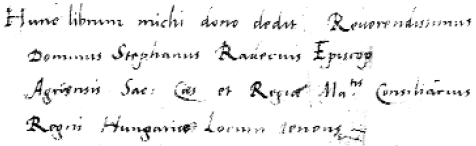 Hunc librum michi dono dedit Reuerendissimus
Dominus Stephanus Radecius Episcop
Agriensis Sac: Caes et Regiae Ma:tis Consiliarius
Regni Hungariae Locum tenens